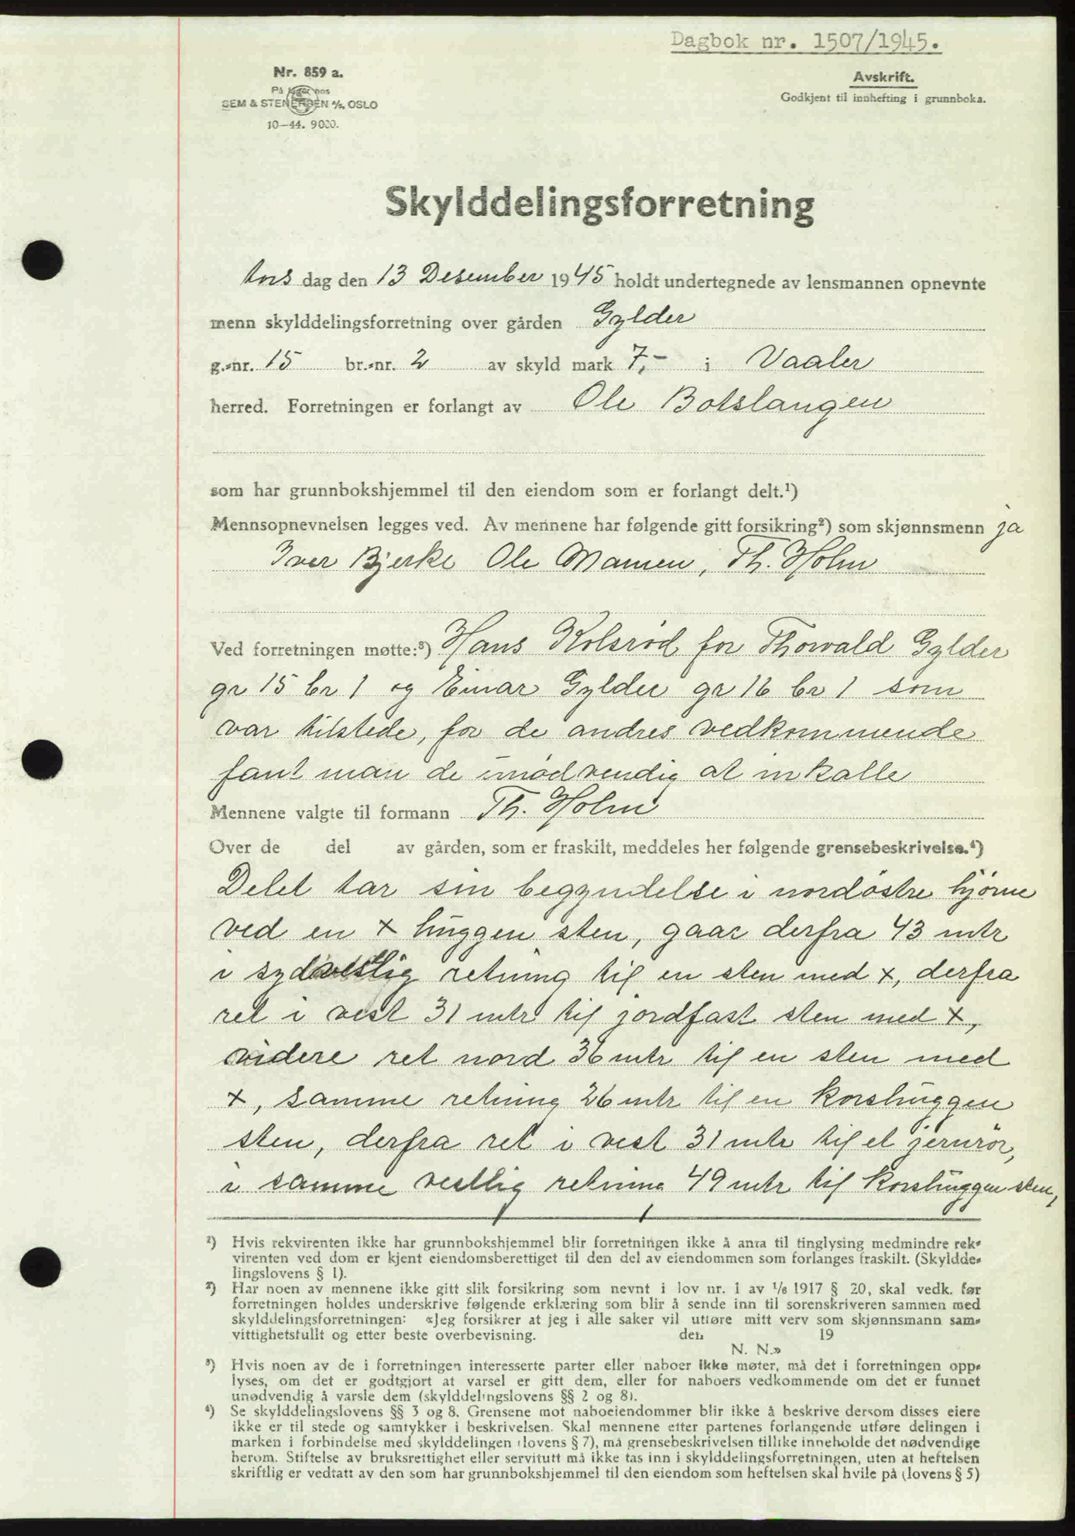 Dagbok nr. 1507/1945.
Nr. 859 a.
På lager hos
SEM & STENERSEN A/S, OSLO
10-44. 9000.
Avskrift.
Godkjent til innhefting i grunnboka.
Skylddelingsforretning
tors dag den 13 Desember 1945 holdt undertegnede av lensmannen opnevnte
menn skylddelingsforretning over gården Gylder
g.-nr. 15 br.-nr. 2 av skyld mark 7,- i Vaaler
herred. Forretningen er forlangt av Ole Botslangen
som har grunnbokshjemmel til den eiendom som er forlangt delt.¹)
Mennsopnevnelsen legges ved. Av mennene har følgende gitt forsikring²) som skjønnsmenn ja
Iver Bjerke Ole Mamen, Th. Holm
Ved forretningen møtte:³) Hans Kolsrød for Thorvald Gylder
gr 15 br 1 og Einar Gylder gr 16 br 1 som
var tilstede, for de andres vedkommende
fant man de unødvendig at inkalle
Mennene valgte til formann Th. Holm
Over de del av gården, som er fraskilt, meddeles her følgende grensebeskrivelse.⁴)
Delet tar sin begyndelse i nordöstre hjørne
ved en x huggen sten, gaar derfra 43 mtr
i sydvestlig retning til en sten med x, derfra
ret i vest 31 mtr til jordfast sten med x,
videre ret nord 36 mtr til en sten med
x, samme retning 26 mtr til en korshuggen
sten, derfra ret i vest 31 mtr til et jernrör,
i samme vestlig retning 49 mtr til korshuggen sten,
¹) Hvis rekvirenten ikke har grunnbokshjemmel blir forretningen ikke å anta til tinglysing medmindre rek-
virenten ved dom er kjent eiendomsberettiget til den del av eiendommen som forlanges fraskilt. (Skyldde-
lingslovens § 1).
²) Har noen av mennene ikke gitt slik forsikring som nevnt i lov nr. 1 av 1/6 1917 § 20, skal vedk. før
forretningen holdes underskrive følgende erklæring som blir å sende inn til sorenskriveren sammen med
skylddelingsforretningen: «Jeg forsikrer at jeg i alle saker vil utføre mitt verv som skjønnsmann sam-
vittighetsfullt og etter beste overbevisning. den 19
N. N.»
³) Hvis noen av de i forretningen interesserte parter eller naboer ikke møter, må det i forretningen opp-
lyses, om det er godtgjort at varsel er gitt dem, eller for naboers vedkommende om det er funnet
unødvendig å varsle dem (skylddelingslovens §§ 2 og 8).
⁴) Se skylddelingslovens §§ 3 og 8. Grensene mot naboeiendommer blir ikke å beskrive dersom disses eiere
ikke er til stede og samtykker i beskrivelsen. Skal mennene etter partenes forlangende utføre delingen i
marken i forbindelse med skylddelingen (lovens § 7), må grensebeskrivelsen tillike inneholde det nødvendige
herom. Stiftelse av bruksrettighet eller servitutt må ikke tas inn i skylddelingsforretningen, uten at heftelsen
skriftlig er vedtatt av den som har grunnbokshjemmel til den eiendom som heftelsen skal hvile på (lovens § 5)